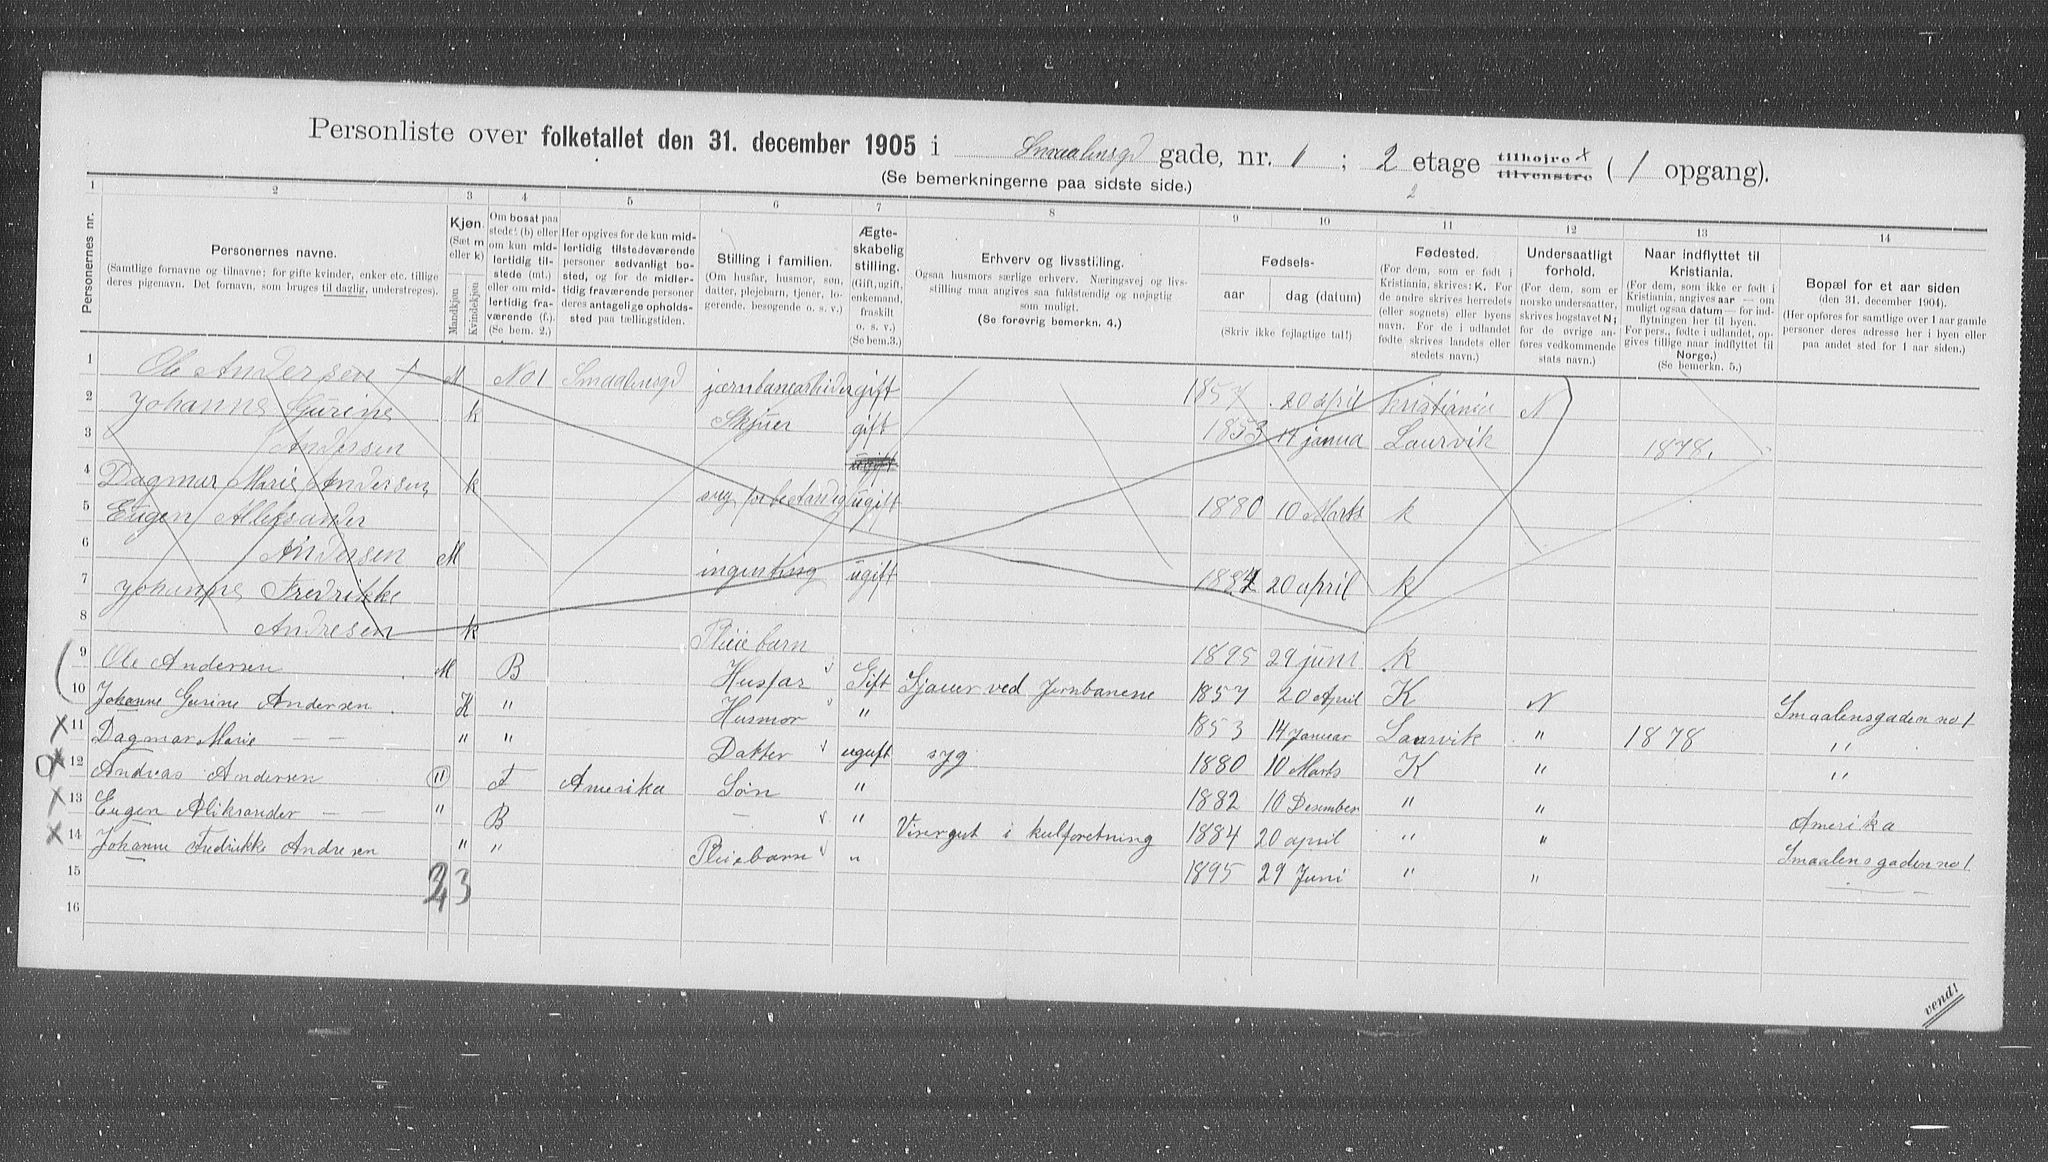 Personliste over folketallet den 31. december 1905 i Smaalensgd gade, nr. 1 ; 2 etage tilhøjre x tilvenstre ( 1 opgang).
(Se bemerkningerne paa sidste side.)
2
1 2 3 4 5 6 7 8 9 10 11 12 13 14
Personernes nr.
Personernes navne.
(Samtlige fornavne og tilnavne; for gifte kvinder, enker etc. tillige deres pigenavn. Det fornavn, som bruges til daglig, understreges).
Kjøn.
(Sæt m eller k)
Mandkjøn
Kvindekjøn
Om bosat paa stedet (b) eller om kun midlertidig tilstede (mt.) eller om midlertidig fraværende (f.).
(Se bem. 2.)
Her opgives for de kun midlertidig tilstedeværende personer sedvanligt bosted, og for de midlertidig fraværende personer deres antagelige opholdssted paa tællingstiden.
Stilling i familien.
(Om husfar, husmor, søn, datter, plejebarn, tjener, logerende. besøgende o. s. v.)
Ægteskabelig stilling.
(Gift, ugift, enkemand, fraskilt o. s. v.)
(Se bem.3.)
Erhverv og livsstilling.
Ogsaa husmors særlige erhverv. Næringsvej og livsstilling maa angives saa fuldstændig og nøjagtig som muligt.
(Se forøvrig bemerkn. 4.)
Fødsels-
aar
dag (datum)
(Skriv ikke fejlagtige tal!)
Fødested.
(For dem, som er født i Kristiania, skrives: K. For de andre skrives herredets (eller sognets) eller byens navn. For de i udlandet fødte skrives landets eller stedets navn.)
Undersaatligt forhold.
(For dem, som er norske undersaatter, skrives bogstavet N; for de øvrige anføres vedkommende stats navn.)
Naar indflyttet til Kristiania.
(For dem, som ikke er født i Kristiania, angives aar — om muligt ogsaa datum — for indflytningen her til byen. For pers., fødte i udlandet, opgives tillige naar indflyttet til Norge.)
(Se bemerkn. 5.)
Bopæl for et aar siden
(den 31. december 1904).
(Her opføres for samtlige over 1 aar gamle personer deres adresse her i byen eller paa andet sted for 1 aar siden.)
1 Ole Andersen M No 1 Smaalensgd jærnbanearbider gift 1857 20 april Kristiania N
2 Johanne Gurine k Skjuer gift 1853 14 janua Laurvik 1878.
3 Andersen ugift
4 Dagmar Marie Andersen k syg for bestandig ugift 1880 10 Marts k
5 Eugen Alleksander
6 Andersen M ingenting ugift 1884 20 april k
7 Johanne Fredrikke
8 Andresen k Pleiebarn 1895 29 juni k
9 Ole Andersen M B Husfar Gift Sjauer ved Jernbanene 1857 20 April K N Smaalensgaden no 1
10 Johanne Gurine Andersen K " Husmor " 1853 14 Januar Laurvik " 1878 "
x 11 Dagmar Marie — — " " Datter ugift syg 1880 10 Marts K " "
x 12 Andreas Andersen " F Amerika Søn " 1882 10 Desember " " Amerika
x 13 Eugen Aliksander — — " B — " Visergut i kulforetning 1884 20 april " " Smaalensgaden no 1
x 14 Johanne Fredrikke Andresen " " Pleiebarn " 1895 29 Juni " " — —
15
16
vend!